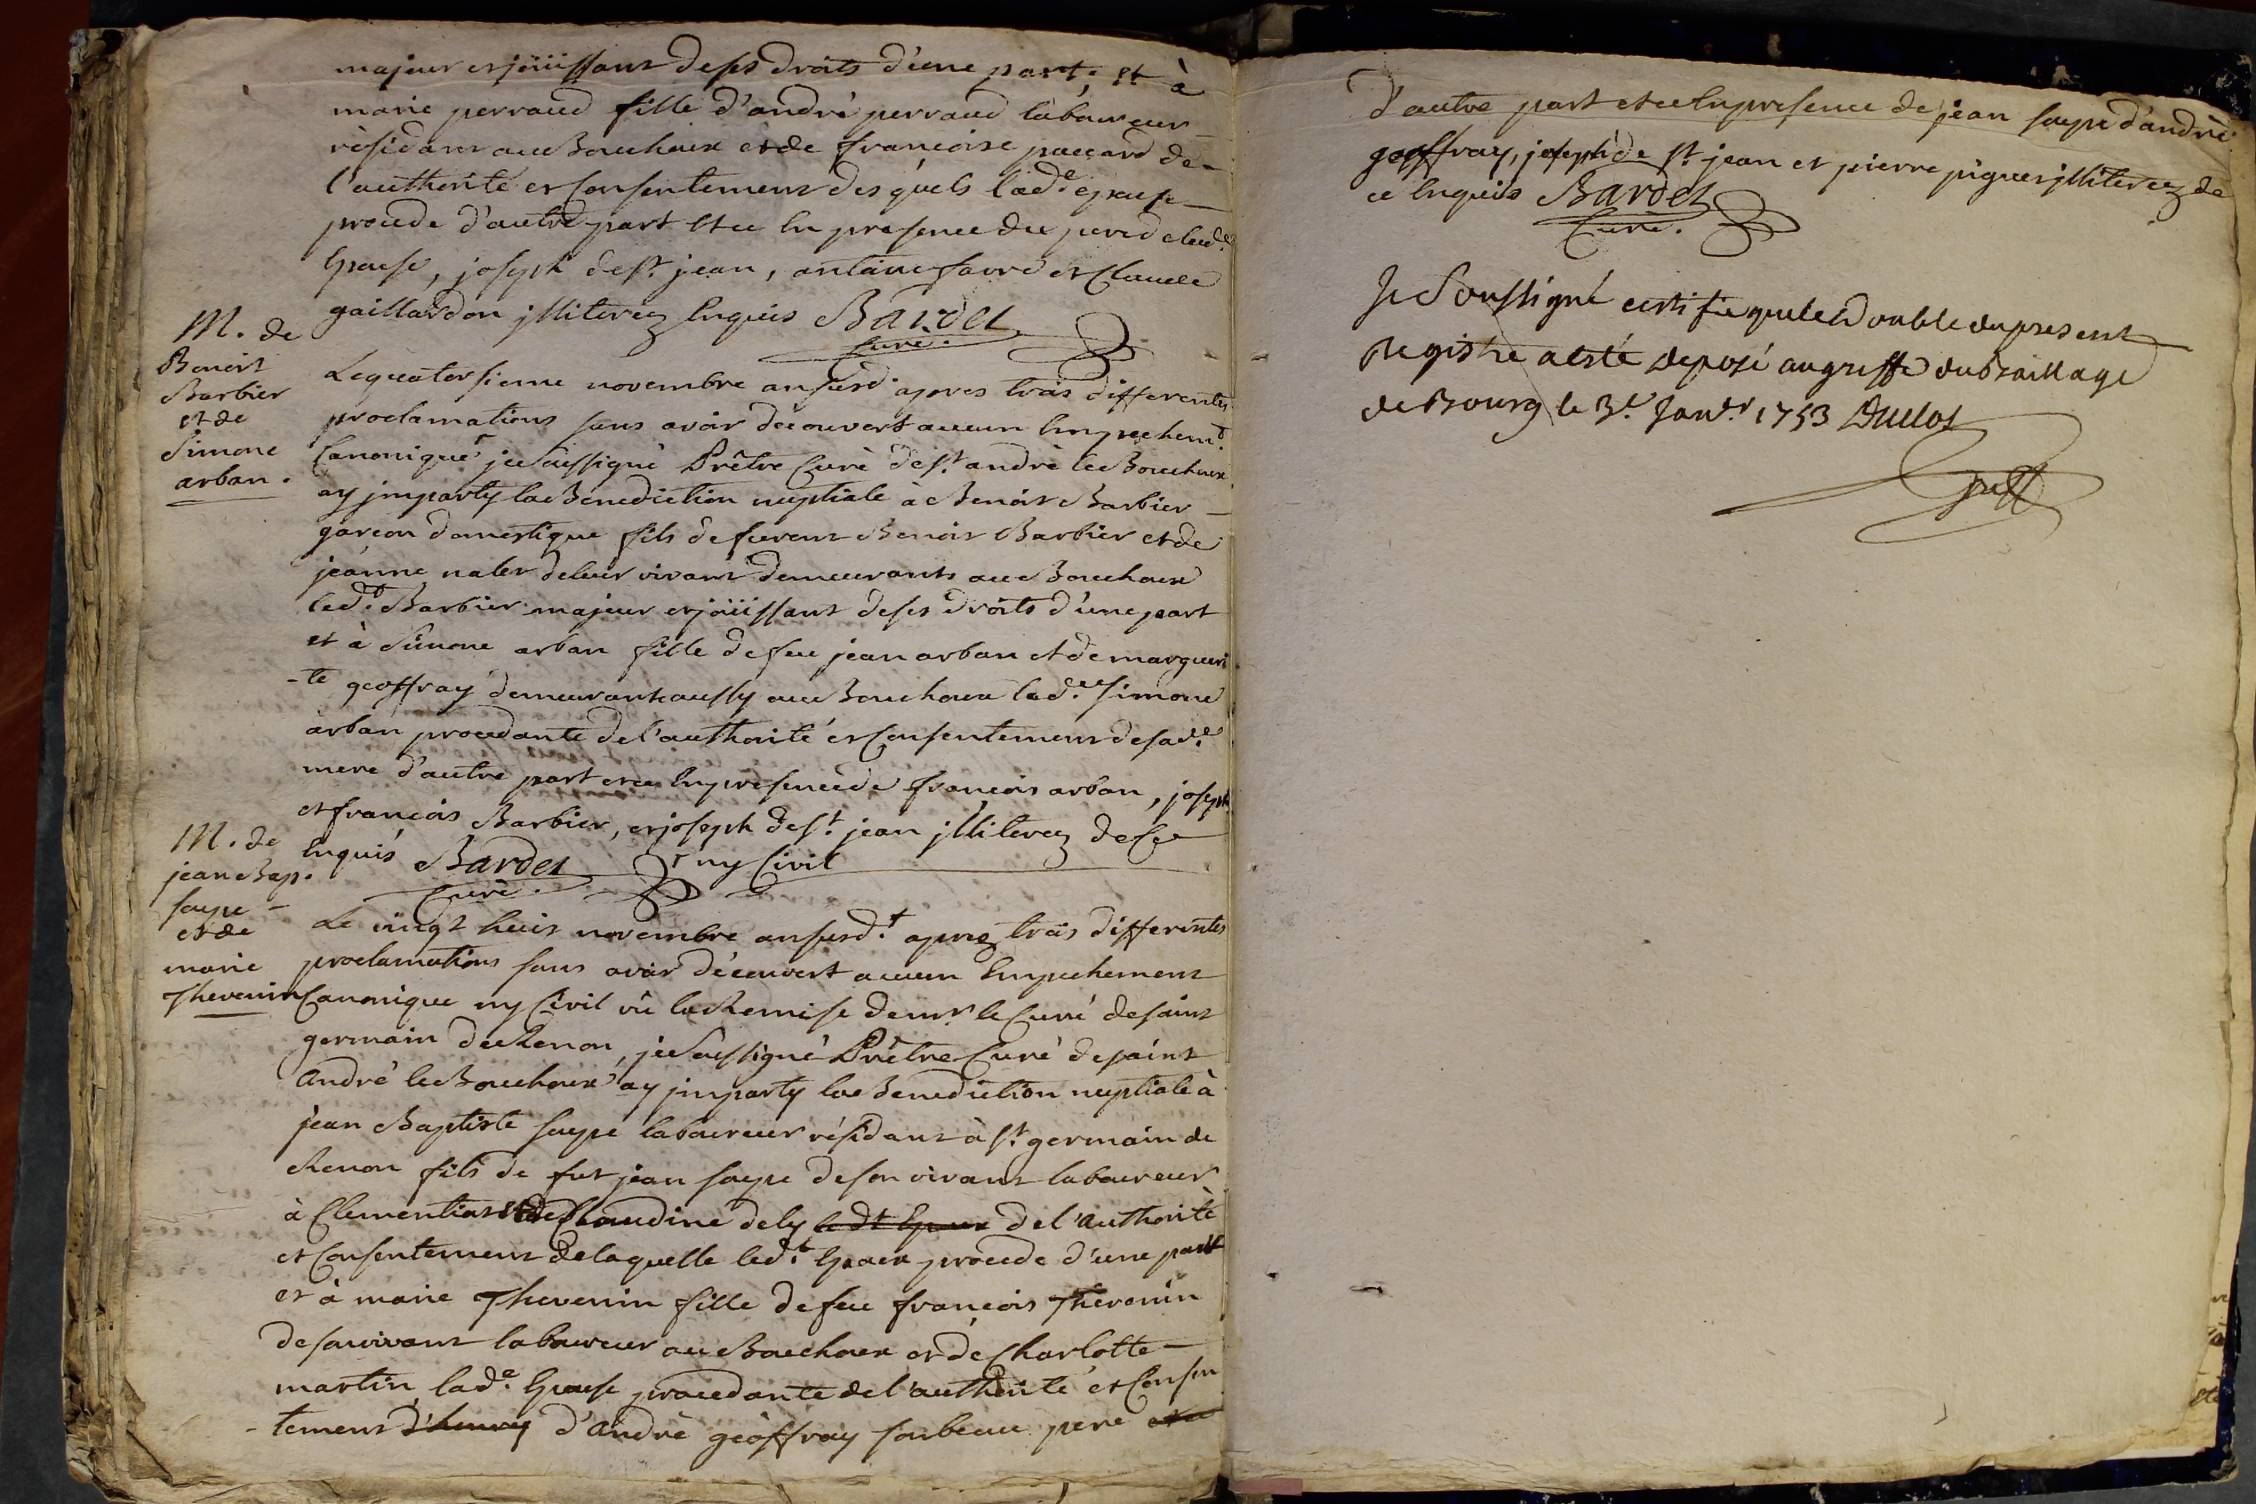 majeur et jöüissant de ses droits d'une part, et à
marie perraud fille d'andrè perraud laboureur
rèsidant au Bouchoux et de francoise paccard de
l'authorité et Consentement des quels lad.e epouse
procede d'autre part et ce En presence du pere de lad.e
Epouse, joseph de st. jean, antoine favre et Claude
gaillardon jlliterez Enquis Bardet
Curé.
M. de
Benoit
Barbier
et de
Simone
arban.
Le quatorsieme novembre an susd.t apres trois differentes
proclamations sans avoir decouvert aucun Empechem.t
Canonique je soussigné Prêtre Curé de st. andré le Bouchoux
ay jmparty la Benediction nuptiale à Benoit Barbier
garcon domestique fils de feu Benoit Barbier et de
jeanne nalet de leur vivant demeurants au Bouchoux
led.t Barbier majeur et jöüissant de ses droits d'une part
et à Simone arban fille de feu jean arban et de margueri
-te geoffray demeurant aussy au Bouchoux lad.e Simone
arban procedante de l'authorité et Consentement de sad.e
mere d'autre part et ce En presence de francois arban, joseph
et francois Barbier, et joseph de st. jean jlliterez de Ce
Enquis Bardet ny Civil
Curé.
M. de
jean Bap.
saype
et de
marie
Thevenin
Le vingt huit novembre an susd.t aprez trois differentes
proclamations sans avoir découvert aucun Empechement
Canonique ny Civil vû la Remise de mr. le Curé de saint
germain de Renon, je soussigné Prêtre Curé de saint
André le Bouchoux ay jmparty la Benediction nuptiale à
jean Baptiste saype laboureur résidant à st. germain de
Renon fils de fut jean saype de son vivant laboureur
à Clementiat et de Claudine dely le dt Epoux de l'authorité
et Consentement de laquelle led.t Epoux procede d'une part
et à marie Thevenin fille de feu francois Thevenin
de son vivant laboureur au Bouchoux et de Charlotte
martin lad.e Epouse procedante de l'authorité et Consen
-tement d'henry d'André géoffray son beau pere et ce
d'autre part et ce En presence de jean saype d'andré
geoffray, joseph de st. jean et pierre piguet jlliterez de
ce Enquis Bardet
Curé.
Je Soussigné certifie que le Double du present
Registre a esté deposé au greffe du Bailliage
de Bourg le 3.e Janv.r 1753 Duclos
greff